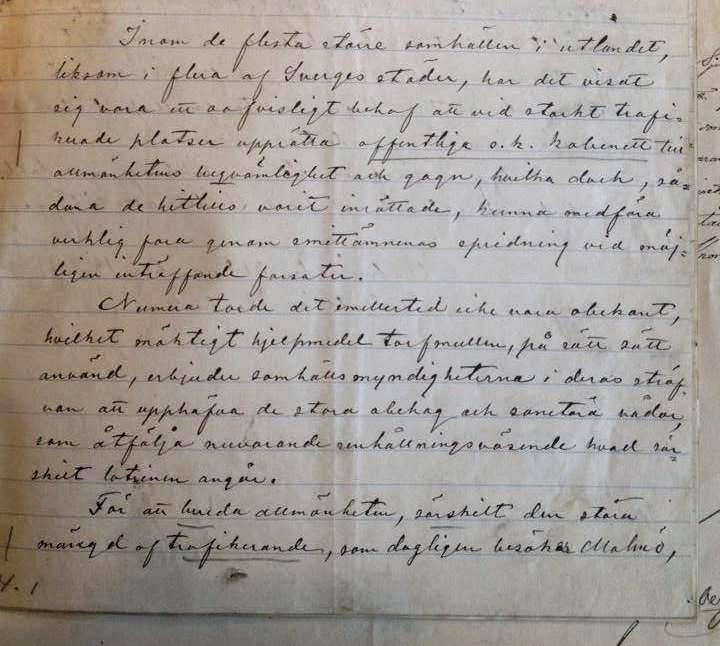 Inom de flesta större samhällen i utlandet,
liksom i flera af Sverges städer, har det visat
sig vara ett oafvisligt behof att vid starkt trafi-
kerade platser upprätta offentliga s.k. kabinett till
allmänhetens beqvämlighet och gagn, hvilka dock, så-
dana de hittills varit inrättade, kunna medföra
verklig fara genom smittämnenas spridning vid möj-
ligen inträffande farsoter.
Numera torde det emellertid icke vara obekant,
hvilket mäktigt hjelpmedel torfmullen, på rätt sätt
använd, erbjuder samhällsmyndigheterna i deras sträf-
van att upphäfva de stora obehag och sanitära vådor,
som åtfölja nuvarande renhållningsväsende hvad sär-
skilt latrinen angår.
För att bereda allmänheten, särskilt den stora
mängd af trafikerande, som dagligen besöker Malmö,